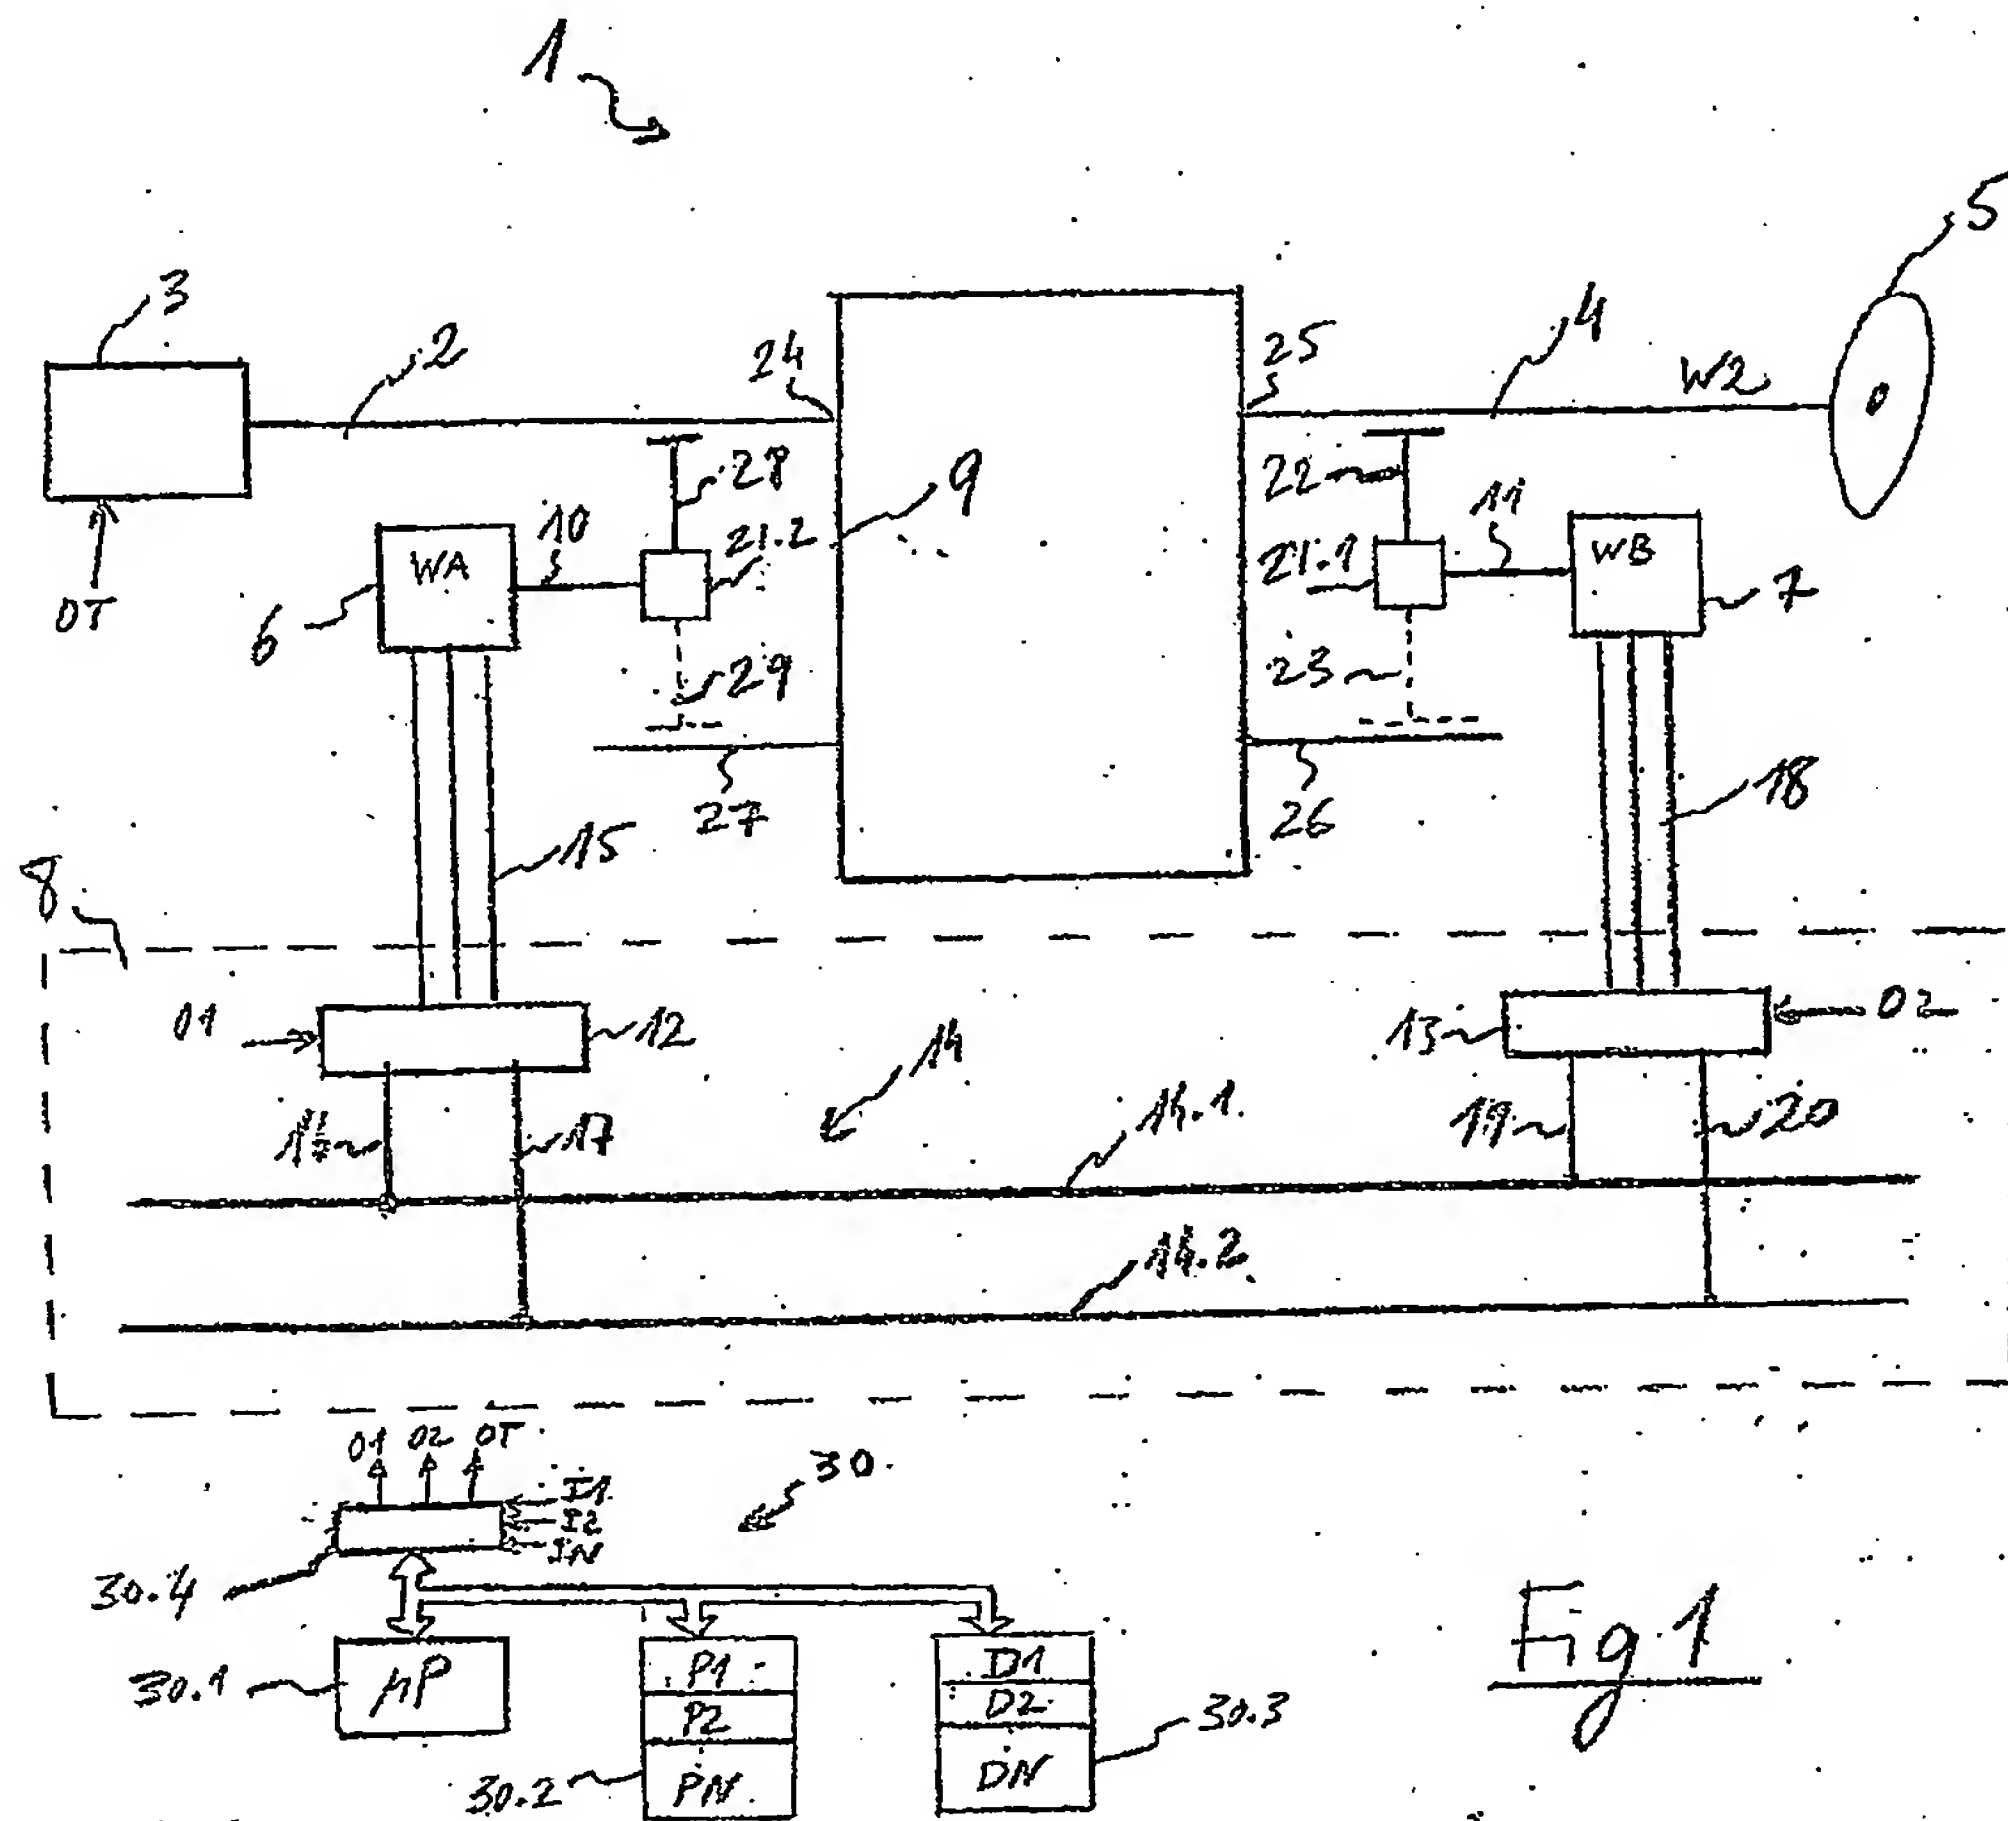 1
5
3
2
24
25
4
W2
28
9
22
11
10
21.2
21.1
WA
WB
7
6
OT
29
23
27
26
15
18
8
O1
12
14
13
O2
17
14.1
19
20
14.2
O1 O2 OT
I1
I2
IN
30
30.4
30.1
µP
P1
P2
PN
30.2
D1
D2
DN
30.3
Fig.1